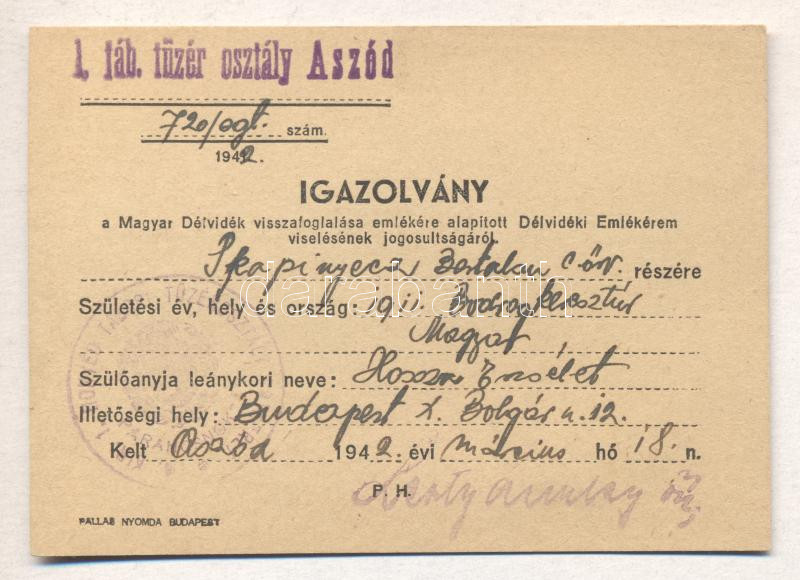 1. táb. tüzér osztály Aszód
720/ogl. szám.
1942.
IGAZOLVÁNY
a Magyar Délvidék visszafoglalása emlékére alapított Délvidéki Emlékérem
viselésének jogosultságáról.
Skapinyecz Bertalan őrv. részére
Születési év, hely és ország: 1911. Bodrogkeresztúr
Magyar
Szülőanyja leánykori neve: Hossza Erzsébet
Illetőségi hely: Budapest X. Bolgár u. 12.
Kelt Aszód 1942 évi március hó 18. n.
P. H.
PALLAS NYOMDA BUDAPEST
darabanth.com